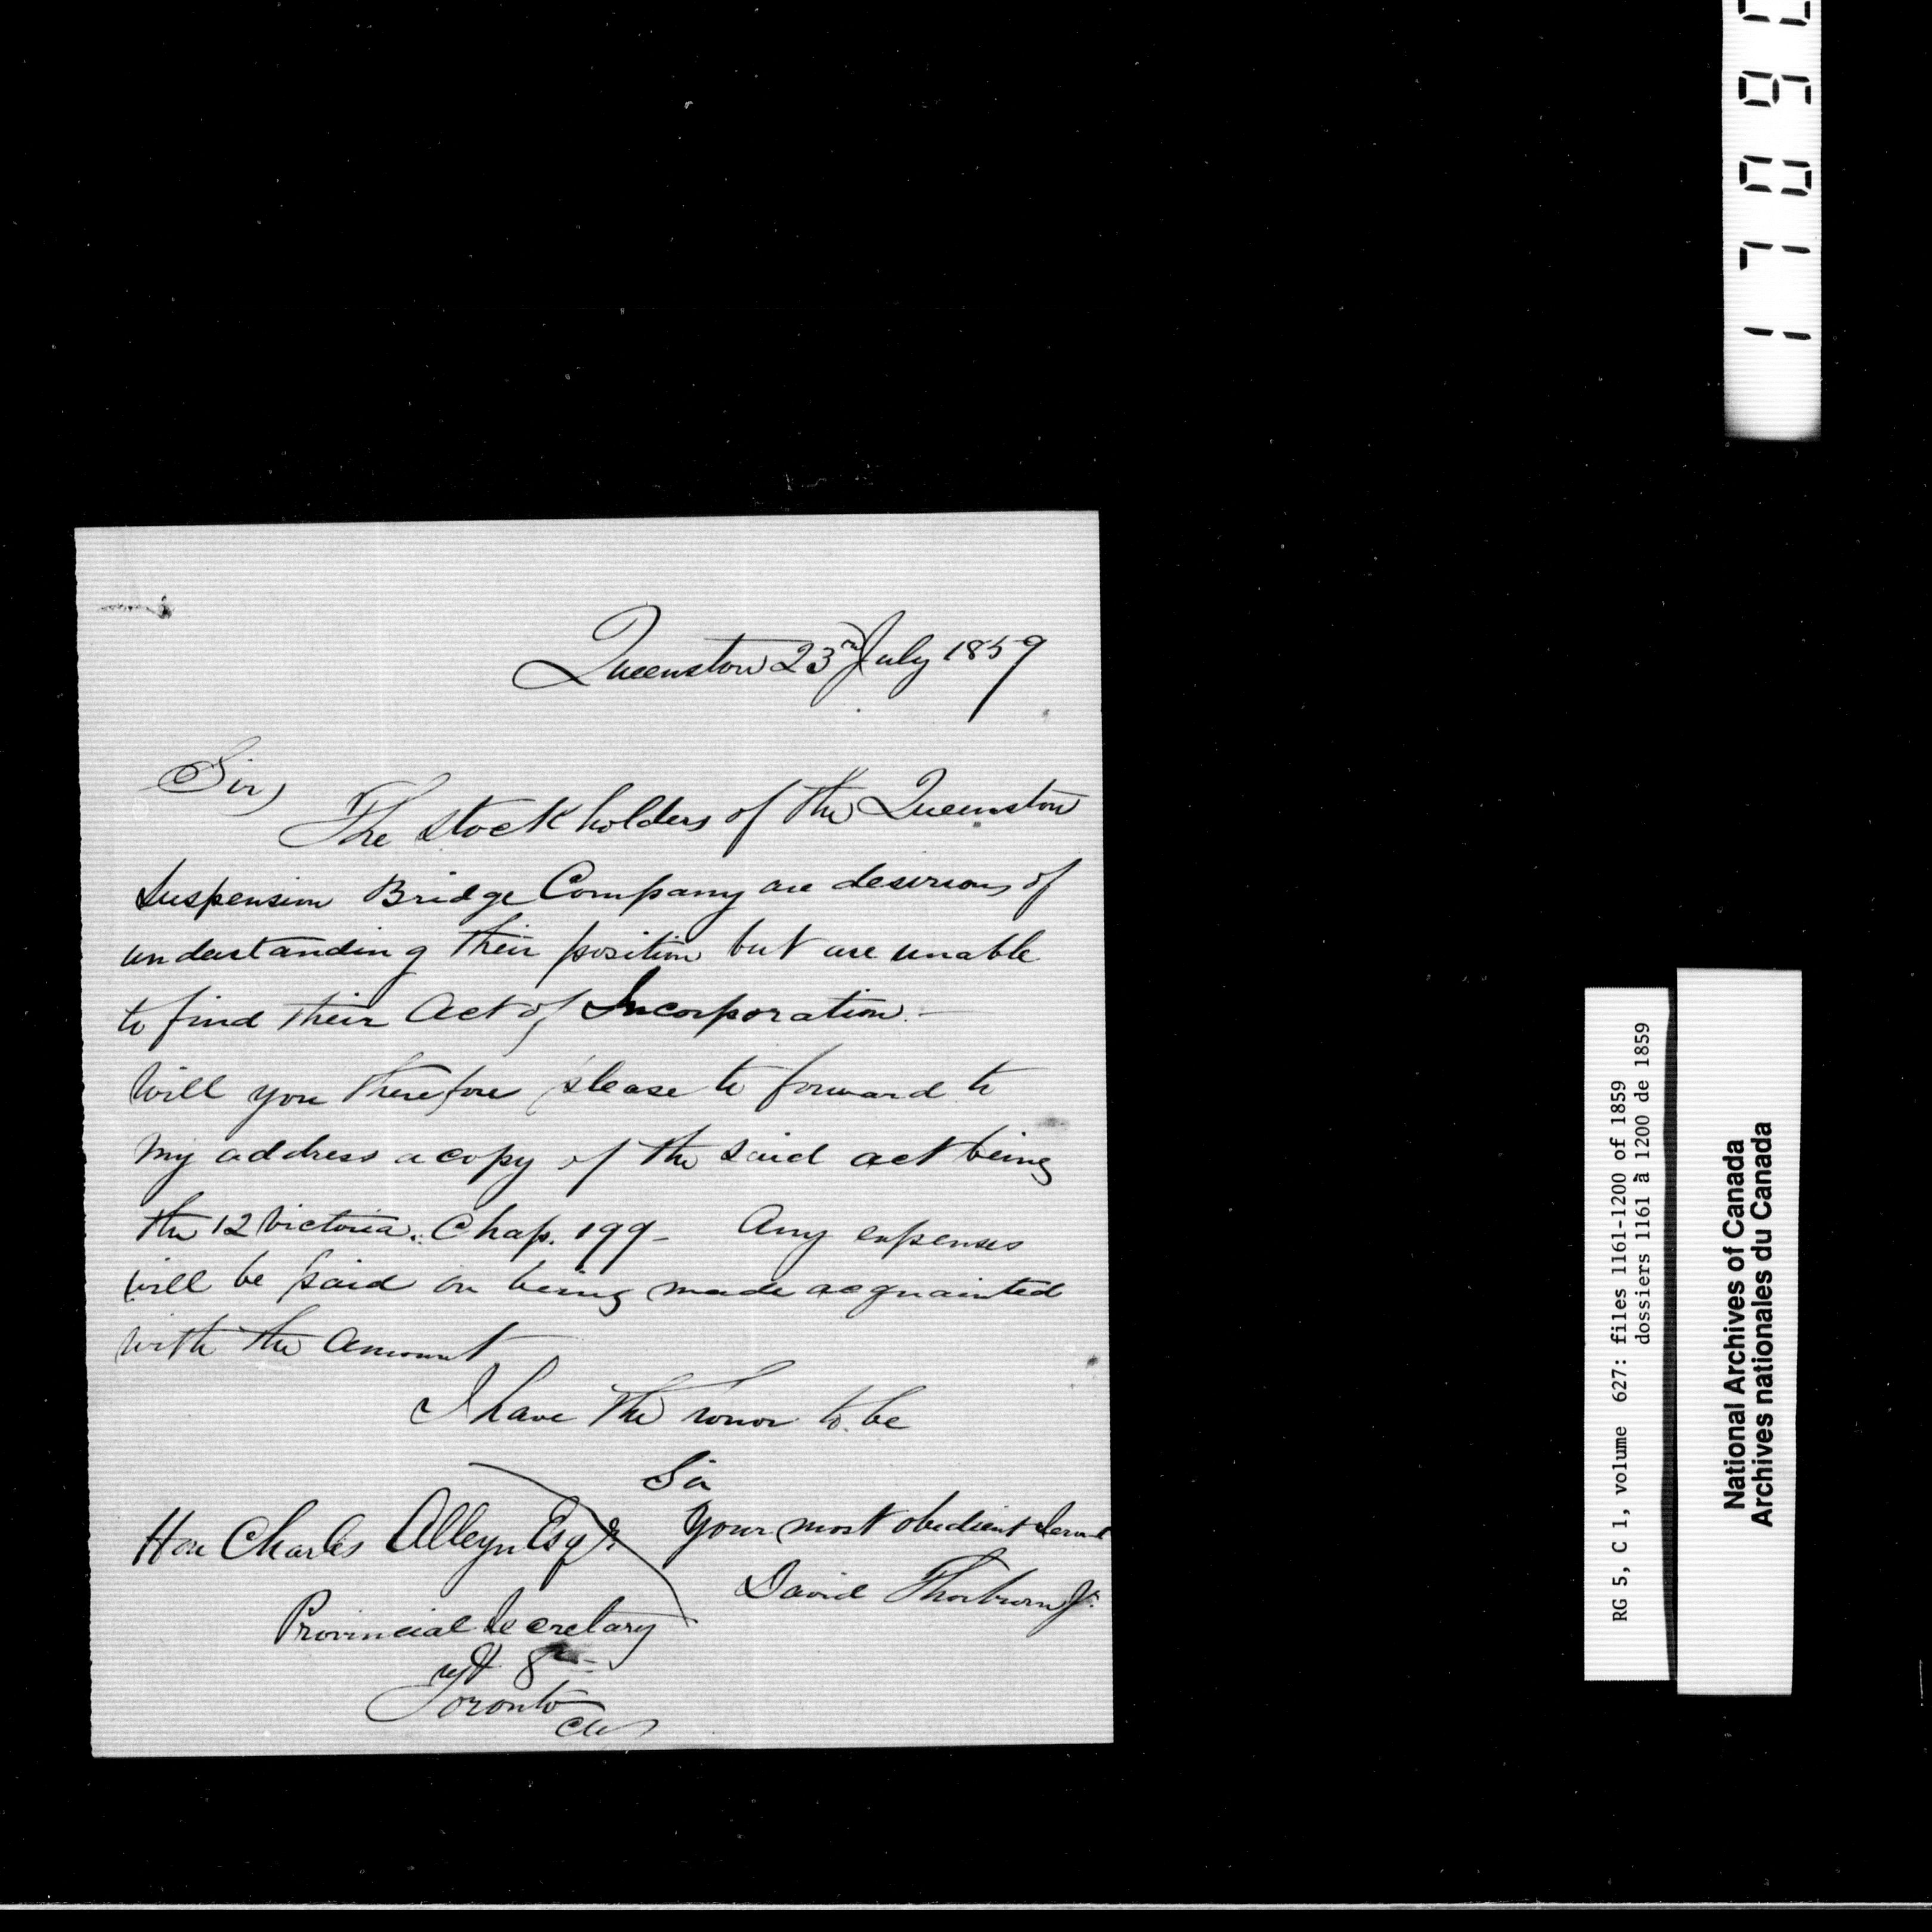 Queenston 23rd July 1859
Sir,
The stock holders of the Queenston
Suspension Bridge Company are desirous of
understanding their position but are unable
to find their Act of Incorporation. —
Will you therefore please to forward to
my address a copy of the said act being
the 12 Victoria. Chap. 199 - Any expenses
will be paid on being made acquainted
with the amount
I have the honor to be
Sir
Your most obedient Servant
David Thorburn Jr.
Hon Charles Alleyn Esqr.
Provincial Secretary
Toronto
CW
RG 5, C 1, volume 627: files 1161-1200 of 1859
dossiers 1161 à 1200 de 1859
National Archives of Canada
Archives nationales du Canada